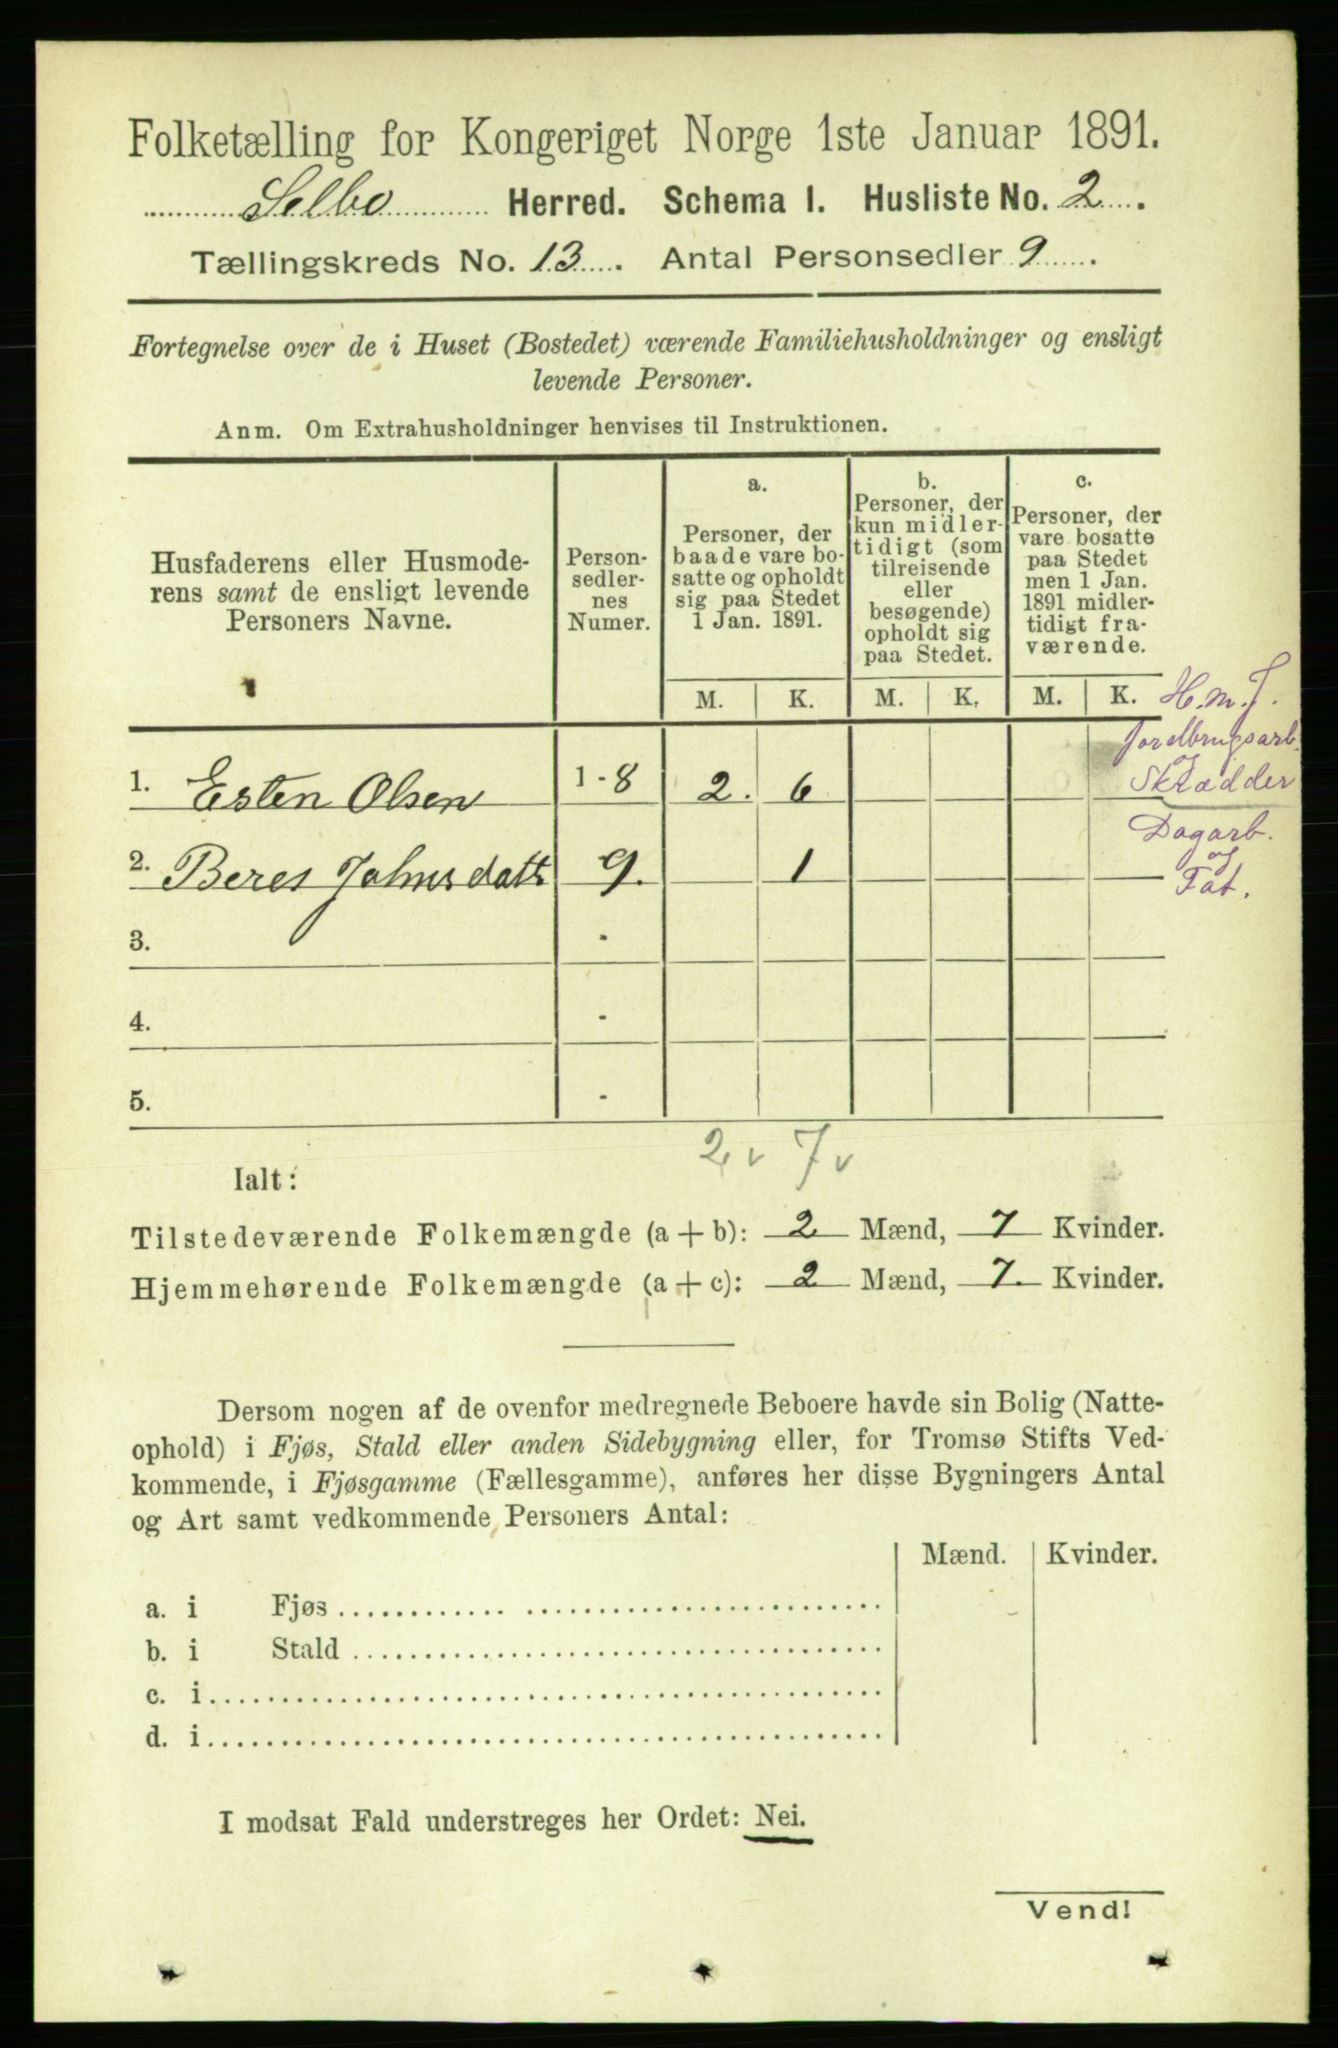 Folketælling for Kongeriget Norge 1ste Januar 1891.
Selbo Herred. Schema I. Husliste No. 2.
Tællingskreds No. 13. Antal Personsedler 9.
Fortegnelse over de i Huset (Bostedet) værende Familiehusholdninger og ensligt
levende Personer.
Anm. Om Extrahusholdninger henvises til Instruktionen.
Husfaderens eller Husmode-
rens samt de ensligt levende
Personers Navne.
Person-
sedler-
nes
Numer.
a.
Personer, der
baade vare bo-
satte og opholdt
sig paa Stedet
1 Jan. 1891.
b.
Personer, der
kun midler-
tidigt (som
tilreisende
eller
besøgende)
opholdt sig
paa Stedet.
c.
Personer, der
vare bosatte
paa Stedet
men 1 Jan.
1891 midler-
tidigt fra-
værende.
M. K. M. K. M. K.
H.m.J.
Jordbrugsarb.
og
Skrædder
1. Esten Olsen 1-8 2. 6
Dagarb.
og
Fat.
2. Beres Johnsdatt. 9. 1
3. -
4. -
5. -
2v 7v
Ialt:
Tilstedeværende Folkemængde (a + b): 2 Mænd, 7 Kvinder.
Hjemmehørende Folkemængde (a + c): 2 Mænd, 7. Kvinder.
Dersom nogen af de ovenfor medregnede Beboere havde sin Bolig (Natte-
ophold) i Fjøs, Stald eller anden Sidebygning eller, for Tromsø Stifts Ved-
kommende, i Fjøsgamme (Fællesgamme), anføres her disse Bygningers Antal
og Art samt vedkommende Personers Antal:
Mænd. Kvinder.
a. i Fjøs
b. i Stald
c. i
d. i
I modsat Fald understreges her Ordet: Nei.
Vend!